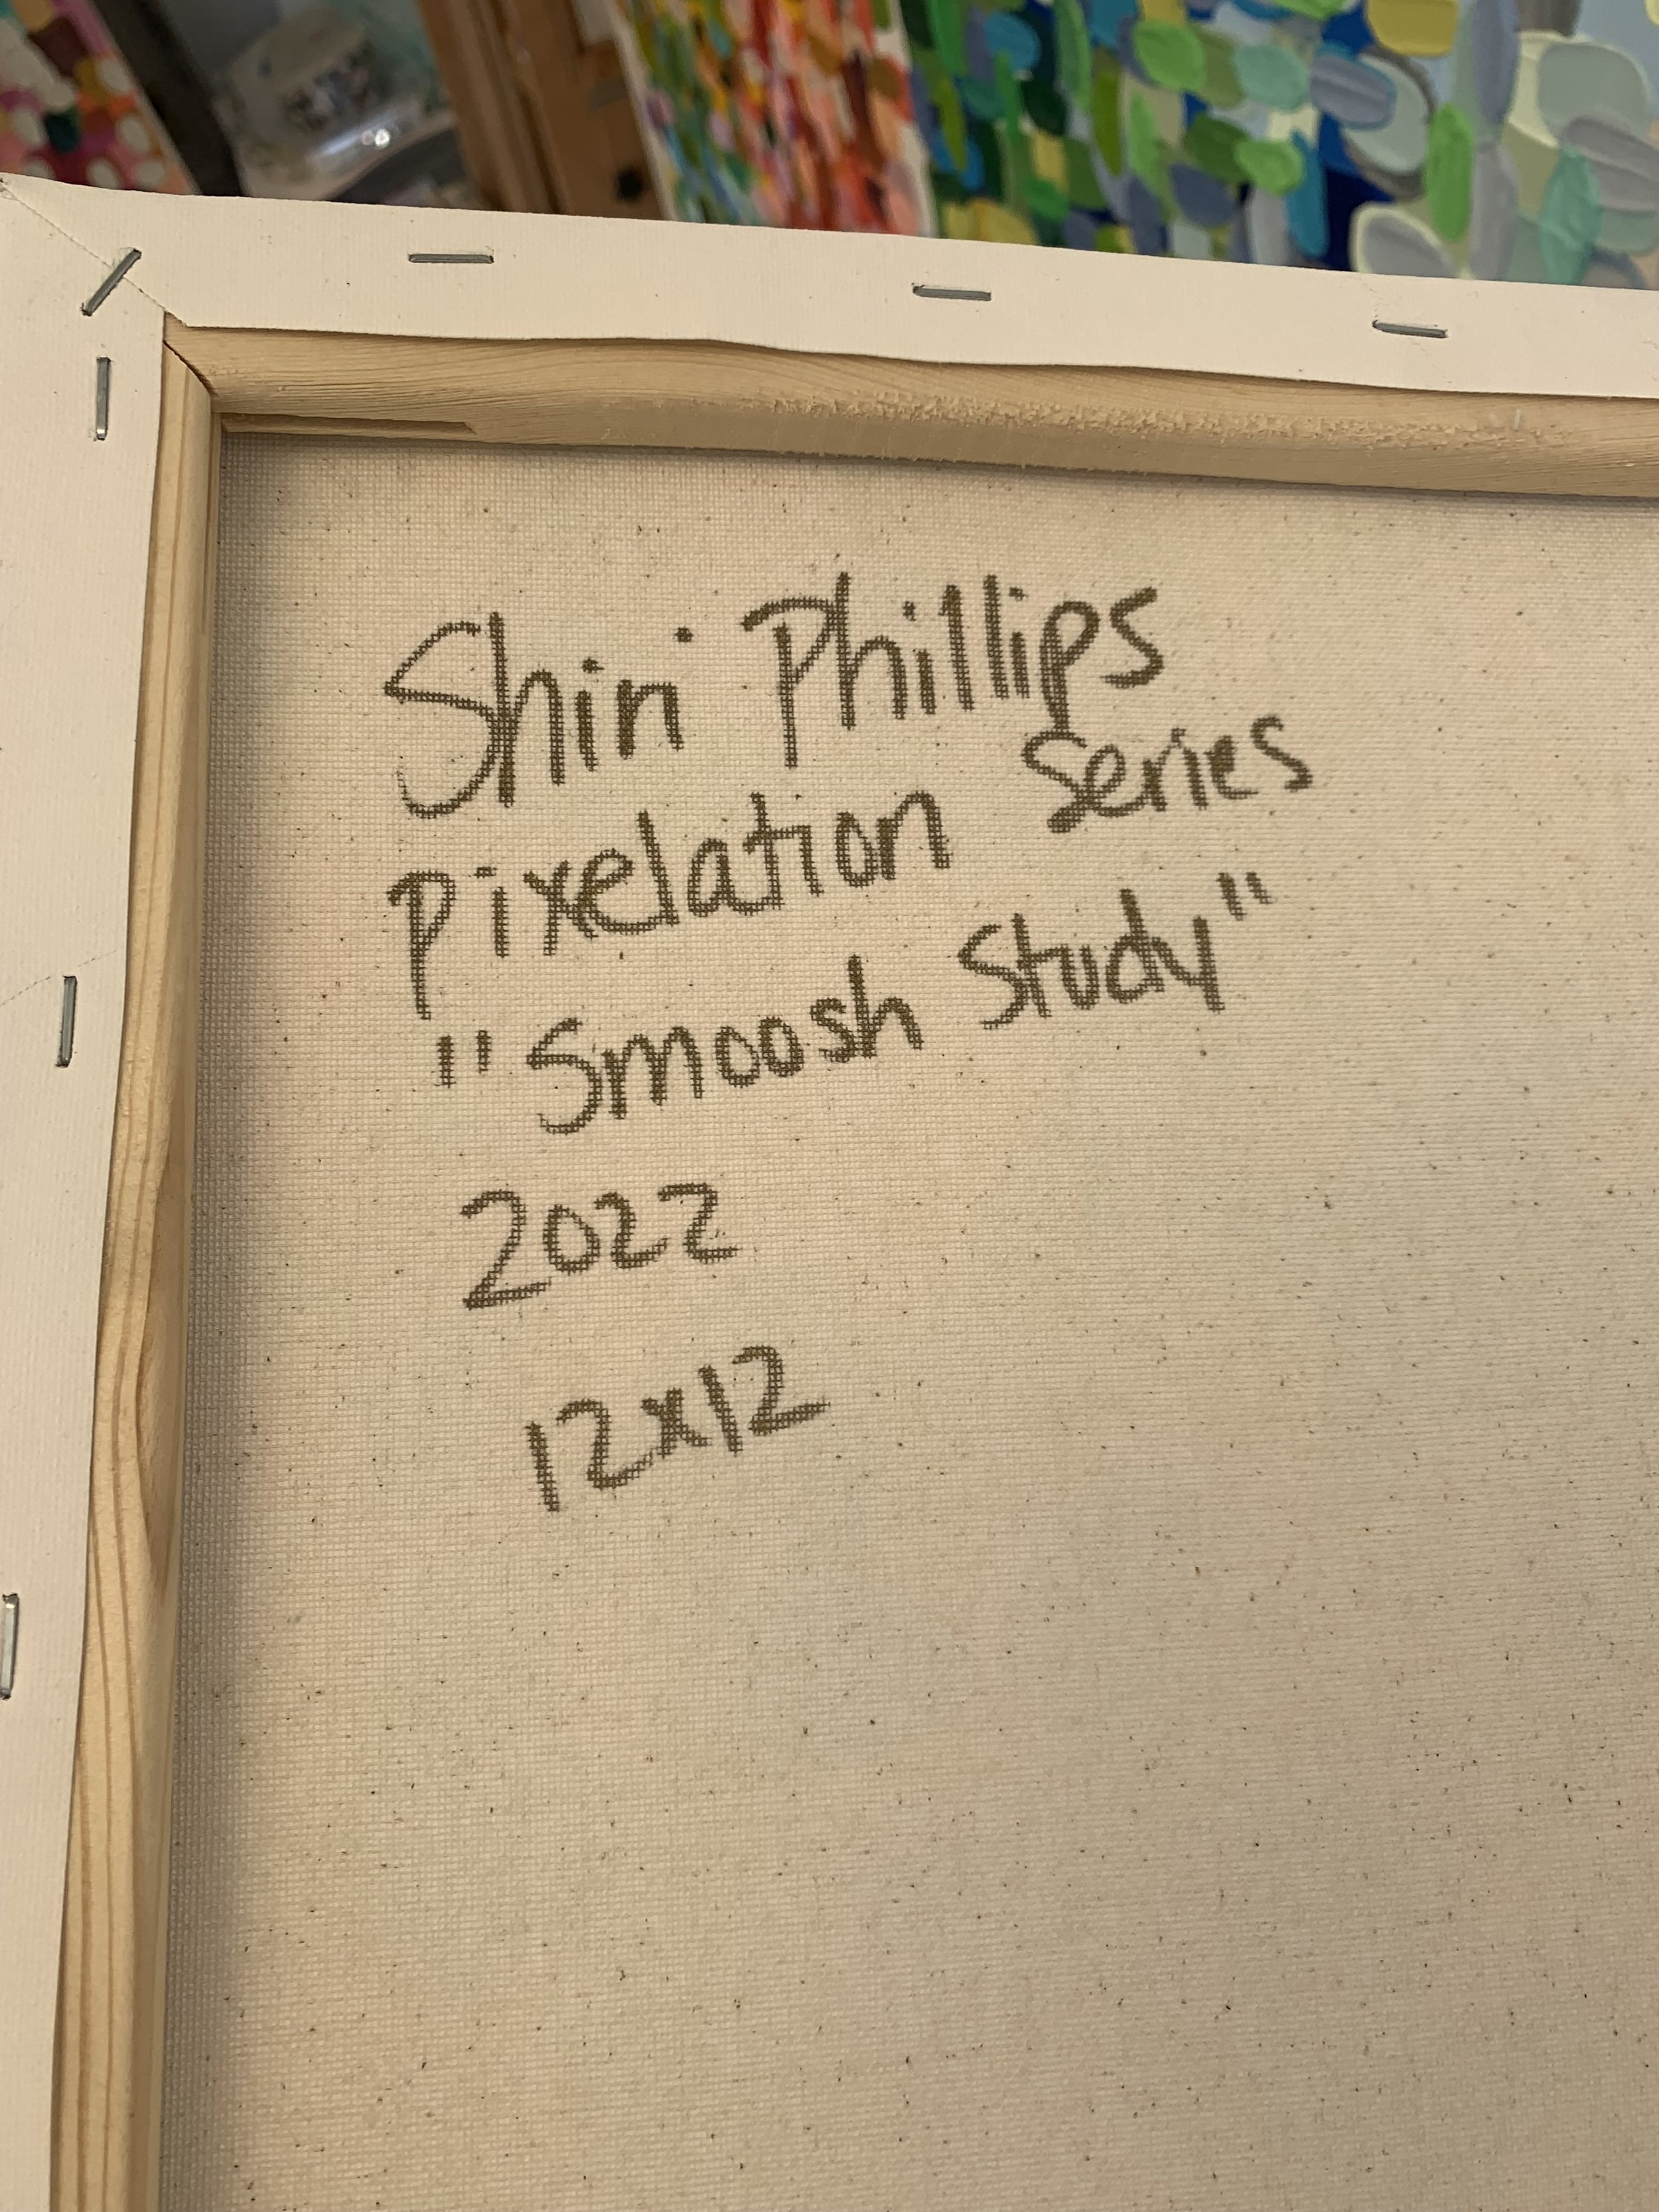 Shiri Phillips
Pixelation Series
"Smoosh Study"
2022
12x12